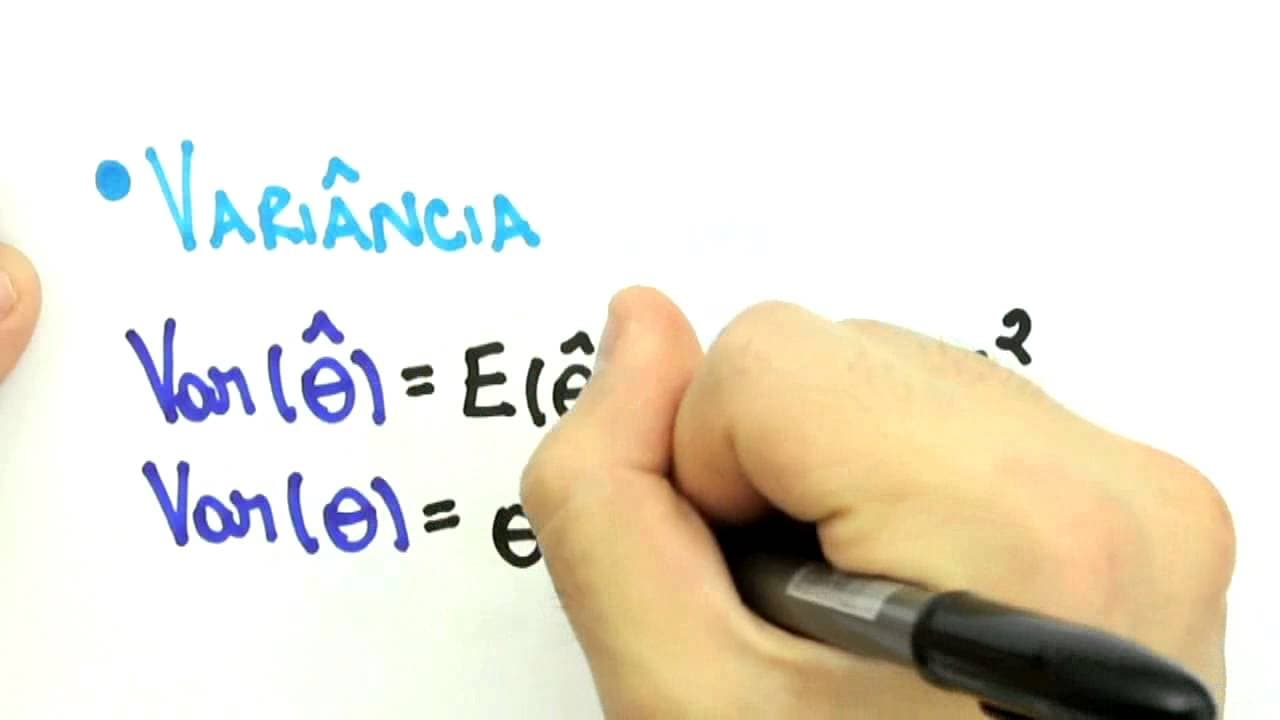 • VARIÂNCIA
Var(θ̂) = E(θ̂ 2
Var(θ) = θ